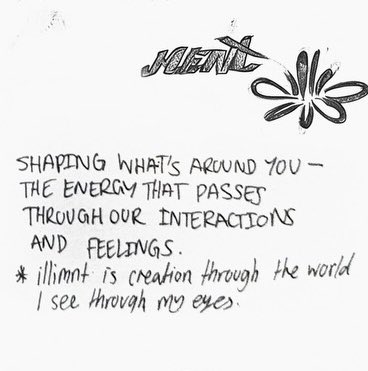 MENT
SHAPING WHAT'S AROUND YOU —
THE ENERGY THAT PASSES
THROUGH OUR INTERACTIONS
AND FEELINGS.
* illimnt is creation through the world
I see through my eyes.